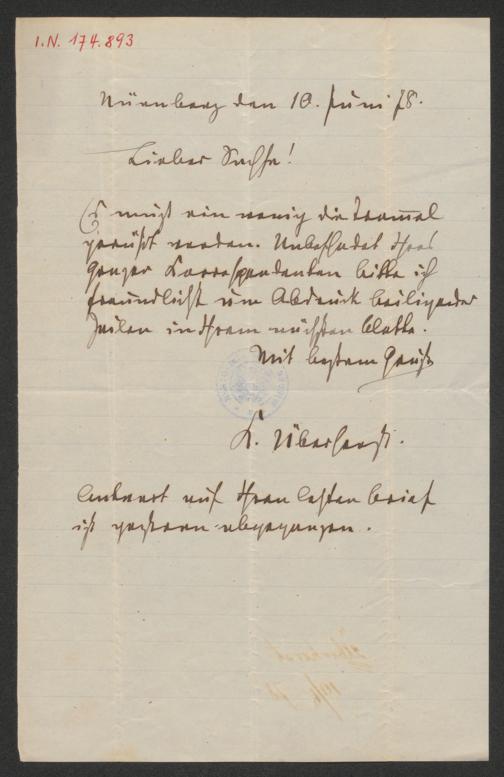 I.N. 174.893
Nürnberg den 10. Juni 78.
Lieber Sachse!
Es muß ein wenig die Trommel
gerührt werden. Unbeschadet Ihres
Grazer Correspondenten bitte ich
freundlichst um Abdruck beiliegender
Zeilen in Ihrem nächsten Blatte.
Mit bestem Gruß
L. Überhorst.
Antwort auf Ihren letzten Brief
ist gestern abgegangen.